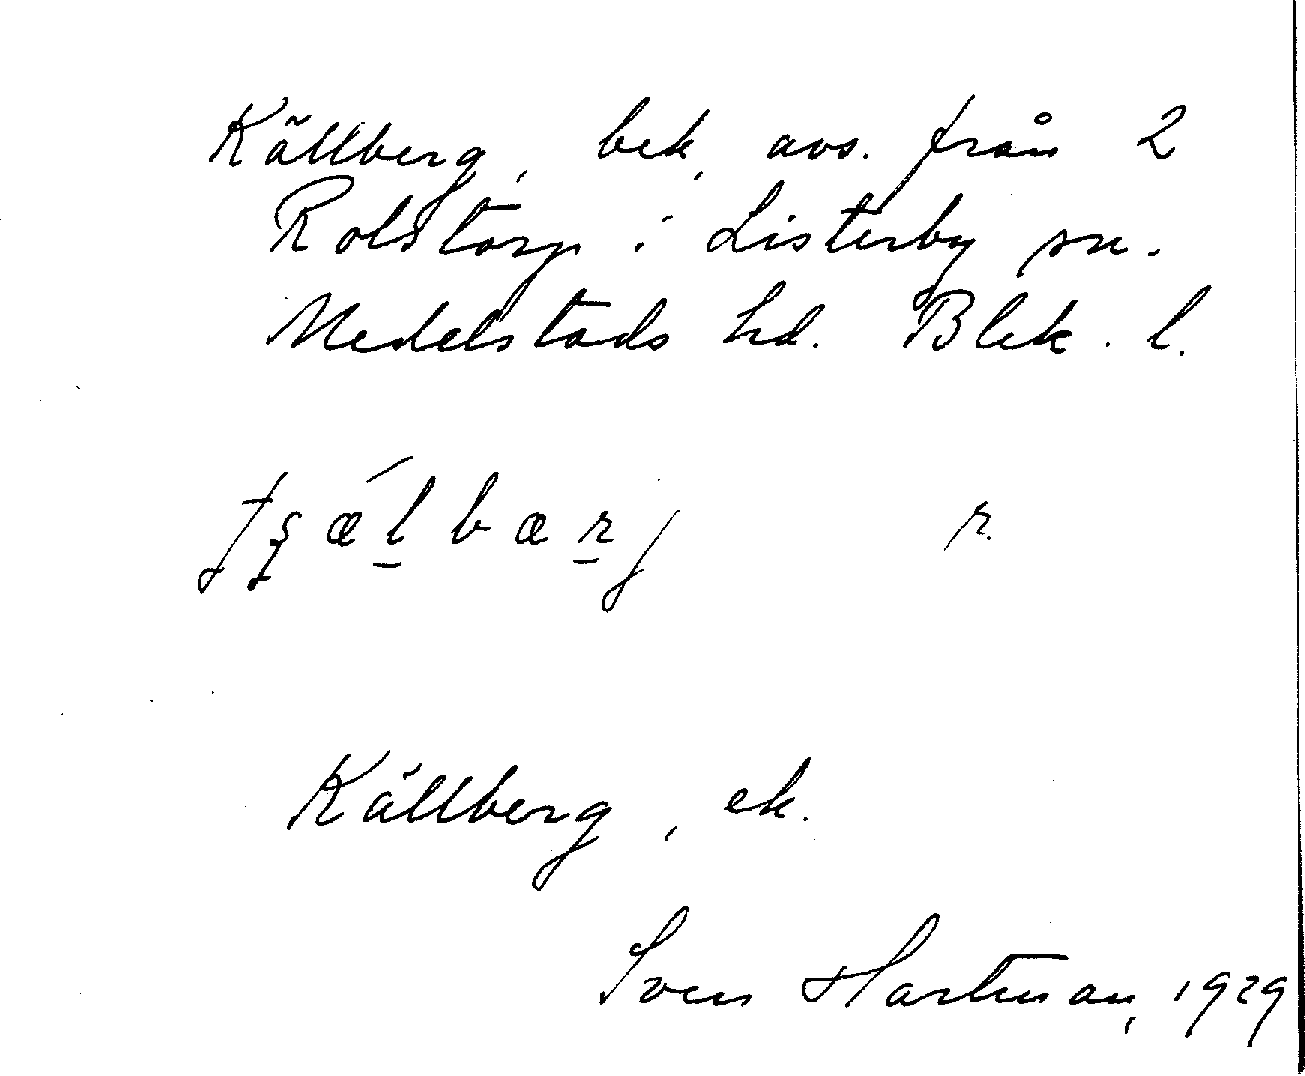 Källberg, bek. avs. från 2
Rolstorp i Listerby sn.
Medelstads hd. Blek. l.
r.
Källberg, ek.
Sven Hartman, 1929